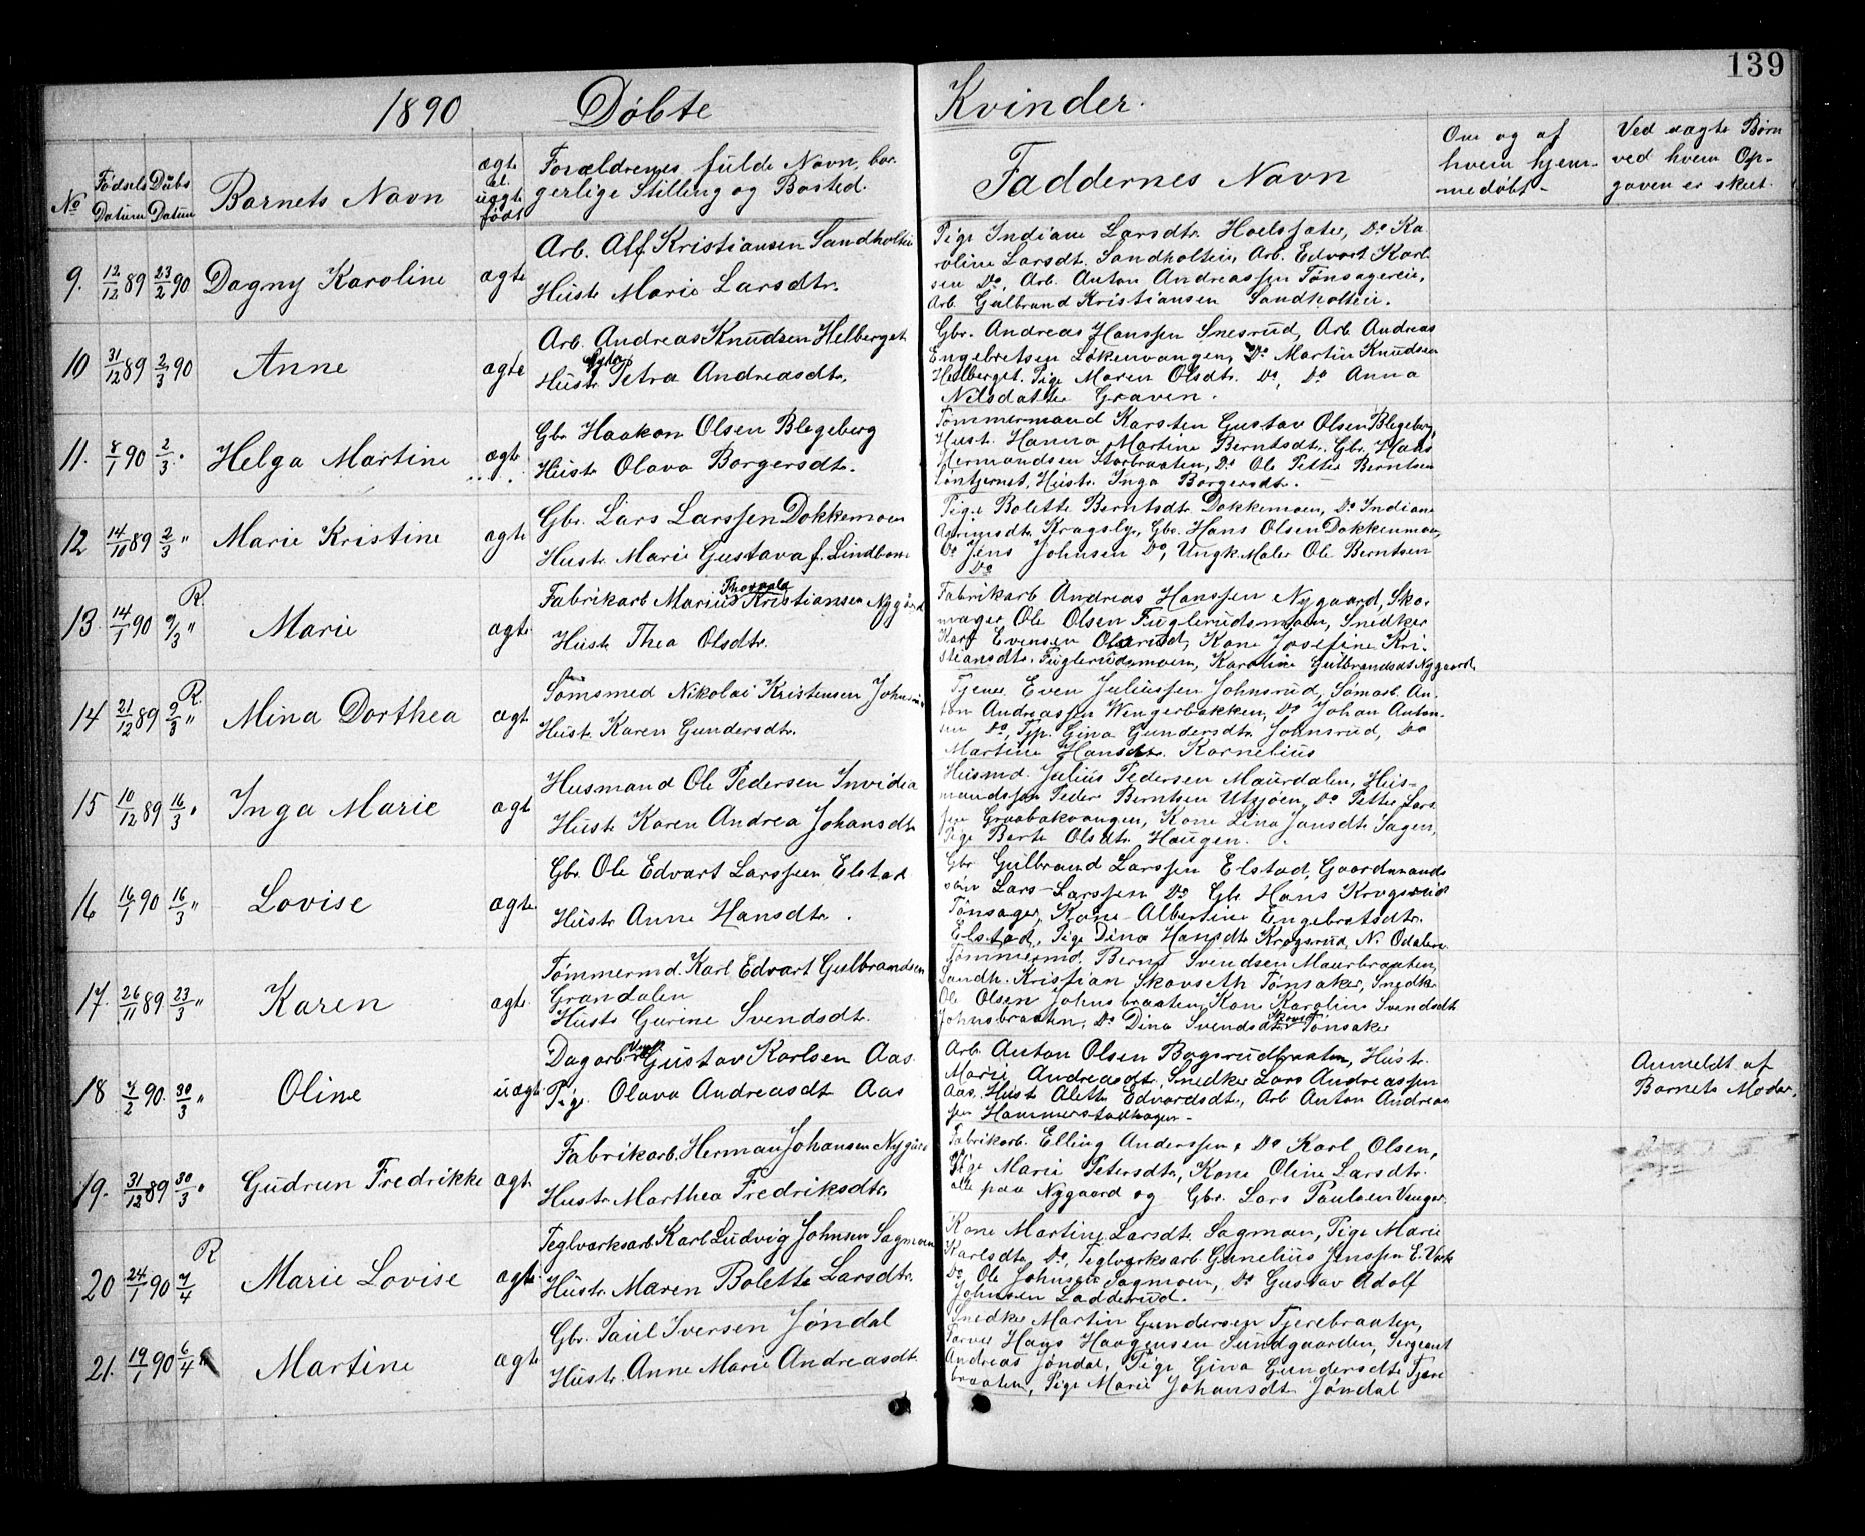 139
1890 Döbte Kvinder.
No
Fødsels Datum
Døbs Datum
Barnets Navn
ægte el. uægte født
Forældrenes fulde Navn, borgerlige Stilling og Bosted.
Faddernes Navn
Om og af hvem hjemmedöbt
Ved uægte Børn ved hvem Opgaven er skeet.
9. 12/12 89 23/2 90 Dagny Karoline ægte
Arb. Alf Kristiansen Sandholtei
Hustr Marie Larsdtr.
Pige Indiane Larsdtr. Do Ka-
roline Larsdt. Sandholtei, Arb. Edvart Karl-
sen Do, Arb. Anton Andreassen Tønsagereie,
Arb. Gulbrand Kristiansen Sandholteie.
10 31/12 89 2/3 90 Anne ægte
Arb. Andreas Knudsen Helberget
Hustr. Petra Andreasdtr,
Gbr. Andreas Hanssen Snesrud, Arb. Andreas
Engebretsen Løkenvangen, Do Martin Knudsen
Helberget. Pige Maren Olsdtr. Do, Do Anna
Nilsdatter Graven.
11. 8/1 90 2/3 " Helga Martine ægte
Gbr Haakon Olsen Blegeberg
Hustr Olava Borgersdtr.
Tømmermand Karsten Gustav Olsen Blegeberg,
Hust. Hanna Martine Berntsdtr, Gbr. Hans
Hermandsen Storbraaten, Do Ole Petter Berntsen
Hustr. Inga Borgersdtr.
12 14/10 89 2/3 " Marie Kristine ægte
Gbr. Lars Larssen Dokkemoen
Hustr Marie Gustava f. Lindbom
Pige Bolette Berntsdtr. Dokkemoen, Do Indiane
Kragsby, Gbr. Hans Olsen Dokkenmoen,
Do Jens Johnsen Do, Ungk. Maler Ole Berntsen
Do
R.
13. 14/1 90 9/3 " Marie ægte
Thorvald
Fabrikarb Marius Kristiansen Nygård
Hustr Thea Olsdtr.
Fabrikarb Andreas Hanssen Nygaard, Sko-
mager Ole Olsen Fuglerudsmoen, Snedker
Karl Evensen Olsrud, Kone Josefine Kri-
stiansdtr. Fuglerudsmoen, Karoline Gulbrandsdt Nygaard
R.
14 21/12 89 9/3 " Mina Dorthea ægte
Sømsmed Nikolai Kristensen Johnsrud
Hustr. Karen Gundersdtr.
Tjener Even Juliussen Johnsrud, Sømarb. An-
ton Andreassen Wengerbakken, Do Johan Anton-
sen Do, Tjp. Gina Gundersdtr. Johnsrud, Do
Martine Hansdtr. Kornelius
15 10/12 89 16/3 " Inga Marie ægte
Husmand Ole Pedersen Invidea
Hustr Karen Andrea Johansdtr
Husmd. Julius Pedersen Maurdalen, Hus-
mandssøn Peder Berntsen Utsjøen, Do Petter Lars-
sen Graabakvangen, Kone Lina Jansdtr Sagen,
Pige Berte Olsdtr. Haugen.
16 16/1 90 16/3 " Lovise ægte
Gbr. Ole Edvart Larssen Elstad
Hustr Anne Hansdtr.
Gbr Gulbrand Larssen Elstad, Gaardmands-
søn Lars Larssen Do Gbr Hans Krogsrud
Tønsager, Kone Albertine Engebretsdtr.
Elstad, Pige Dina Hansdtr Krogsrud, N. Odalen.
17. 26/11 89 23/3 " Karen ægte
Tømmermd. Karl Edvart Gulbrandsen
Grandalen
Hustr Gurine Svendsdtr.
Tømmermd. Bernt Svendsen Maurbraaten,
Landh. Kristian Skovseth Tønsaker, Snedker
Ole Olsen Johnsbraaten, Kone Karoline Svendsdtr
Johnsbraaten, Do Dina Svendsdtr Skovset Tønsaker
18 7/2 90. 30/3 " Oline uægte
Dagarb. Ungk. Gustav Karlsen Aas
Pig. Olava Andreasdt Aas
Arb. Anton Olsen Bogsrudbraaten, Hustr.
Marie Andreasdtr, Snedker Lars Andreassen
Aas, Hustr Alette Edvardsdtr, Arb Anton Andreas-
sen Hammerstadhagen
Anmeldt af
Barnets Moder.
19. 31/12 89 30/3 " Gudrun Fredrikke ægte
Fabrikarb. Herman Johansen Nygård
Hustr. Marthea Fredriksdtr.
Fabrikarb. Elling Anderssen, Do Karl Olsen,
Pige Marie Petersdtr, Kone Oline Larsdtr.
alle paa Nygaard og Gbr. Lars Paulsen Vanger.
R
20 24/1 90 7/4 Marie Lovise ægte
Teglværksarb Karl Ludvig Johnsen Sagmoen
Hustr. Maren Bolette Larsdtr.
Kone Martine Larsdtr Sagmoen, Pige Marie
Karlsdtr Do, Teglværksarb. Gunelius Jenssen E. Værk
Do Ole Johnsen Sagmoen, Do Gustav Adolf
Johnsen Ladderud.
21. 19/1 90 6/4 Martine ægte
Gbr. Paul Iversen Jöndal
Hustr. Anne Marie Andreasdt.
Snedker Martin Gundersen Tjerebraaten,
Farver Hans Haagensen Sundgaarden, Sergeant
Andreas Jöndal, Pige Gina Gundersdtr Tjære-
braaten, Pige Marie Johansdtr Jöndal